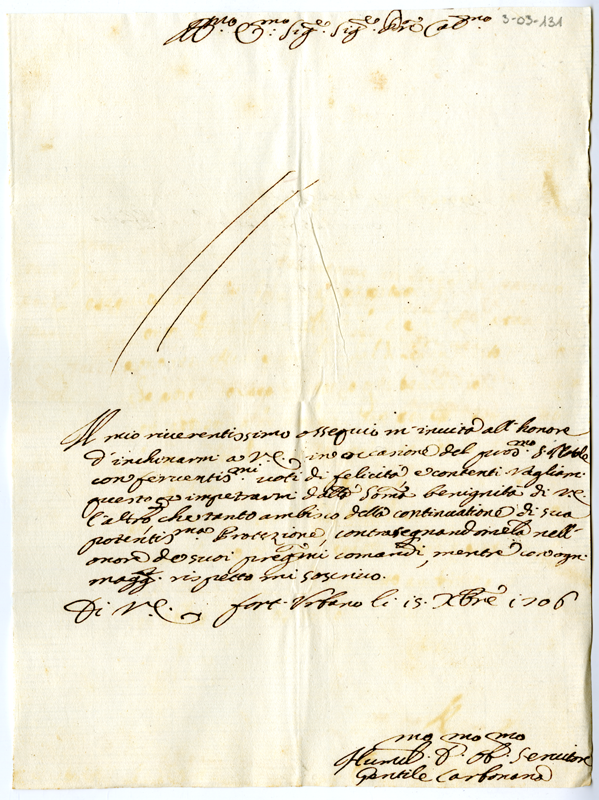 3-03-131
Ill.mo Sig.e Sig.e
Il mio riverentissimo ossequio m'invita all'honore
d'inchinarmi a V.E. in occasione del pros.mo S. Natale
con ferventis.mi voti di felicità e contenti. Vagliami
questo impetrarmi dalla somma benignità di V.E.
l'altro che tanto ambisco della continuatione di sua
potentis.ma Protezione, contrasegnandomela nell'
onore de suoi comandi, mentre con ogni
magg.r rispetto mi soscrivo.
Di V.E. Fort Urbano li 15. Xbre 1706
Humil.mo D.mo Ob.mo Servitore
Gentile Carbonana